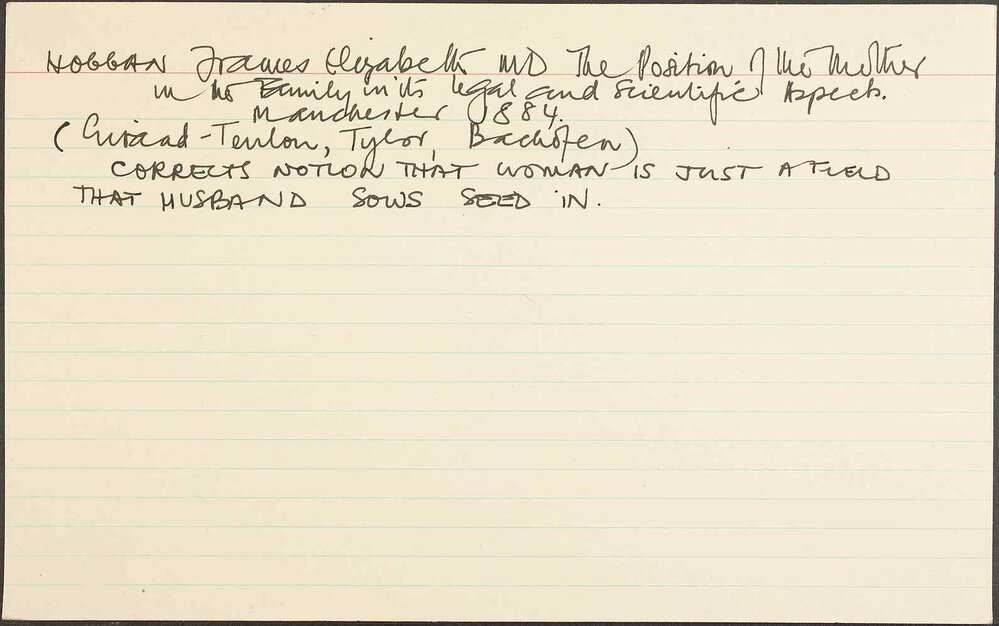 HOGGAN Frances Elizabeth MD The Position of the Mother
in the Family in its legal and scientific Aspects.
Manchester 1884.
(Giraud-Teulon, Tylor, Bachofen)
CORRECTS NOTION THAT WOMAN IS JUST A FIELD
THAT HUSBAND SOWS SEED IN.